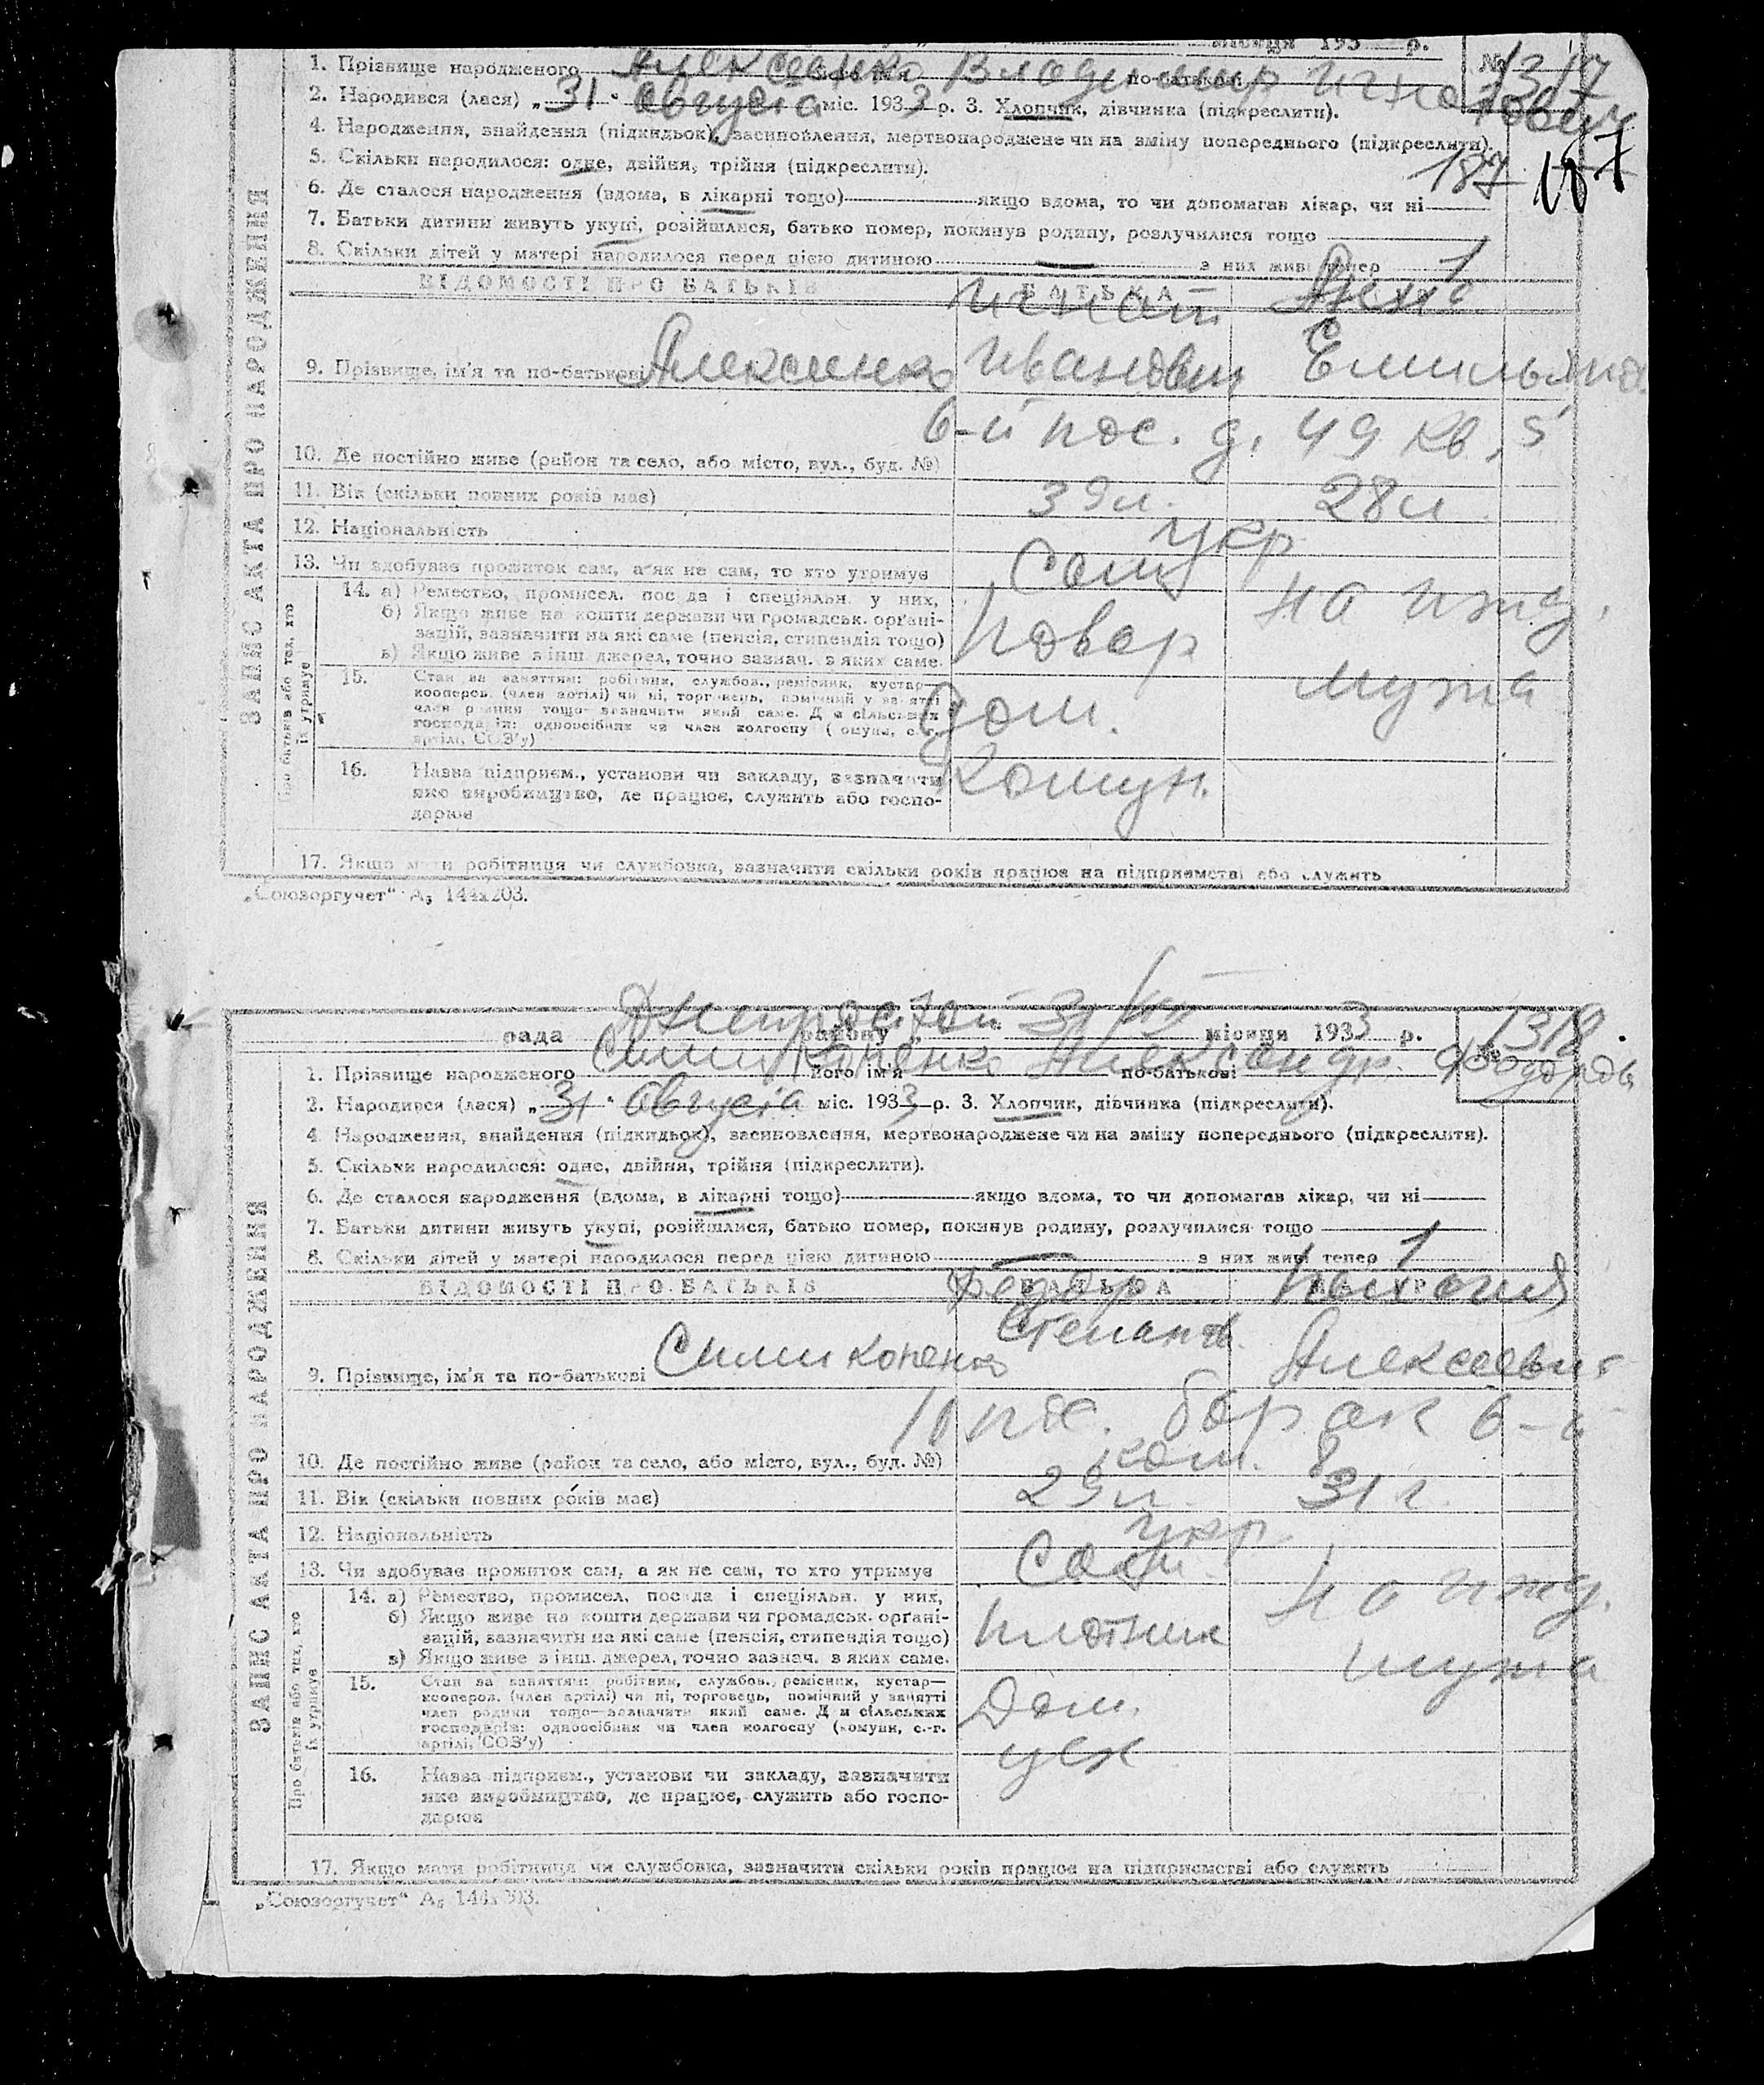 місяця 193 р.
№ 1317
1. Прізвище народженого Алексеенко його ім'я Владимир по-батькові Игнатович
2. Народився (лася) „31" Августа міс. 1933 р. 3. Хлопчик, дівчинка (підкреслити).
4. Народження, знайдення (підкидьок), засиновлення, мертвонароджене чи на зміну попереднього (підкреслити).
5. Скільки народилося: одне, двійня, трійня (підкреслити).
187 187
6. Де сталося народження (вдома, в лікарні тощо) якщо вдома, то чи допомагав лікар, чи ні
7. Батьки дитини живуть укупі, розійшлися, батько помер, покинув родину, розлучилися тощо
8. Скільки дітей у матері народилося перед цією дитиною — з них живі тепер 1
ВІДОМОСТІ ПРО БАТЬКІВ БАТЬКА
Игнат
9. Прізвище, ім'я та по-батькові Алексеенко Иванович
6-й пос. д. 49 кв. 5
10. Де постійно живе (район та село, або місто, вул., буд. №)
11. Вік (скільки повних років має) 39 л. 28 л.
12. Національність укр
13. Чи здобуває прожиток сам, а як не сам, то хто утримує Сам на ижд.
ЗАПИС АКТА ПРО НАРОДЖЕННЯ
Про батьків або тих, хто їх утримує
14. а) Ремество, промисел, посада і спеціяльн. у них,
б) Якщо живе на кошти держави чи громадськ. органі-
зацій, зазначити на які саме (пенсія, стипендія тощо)
в) Якщо живе з інш. джерел, точно зазнач. з яких саме.
Повар мужа
15. Стан за заняттям: робітник, службов., ремісник, кустар—
кооперов. (член артілі) чи ні, торговець, помічний у занятті
член родини тощо—зазначити який саме. Для сільських
господарів: одноосібник чи член колгоспу (комуни, с.-г.
артілі, СОЗ'у)
Дом.
16. Назва підприєм., установи чи закладу, зазначити
яке виробництво, де працює, служить або госпо-
дарює
Комун.
17. Якщо мати робітниця чи службовка, зазначити скільки років працює на підприємстві або служить
„Союзоргучет" А5 144х203.
рада Днепрострой району 31/VIII місяця 1933 р.
№ 1318
1. Прізвище народженого його ім'я Александр по-батькові
2. Народився (лася) „31" Августа міс. 1933 р. 3. Хлопчик, дівчинка (підкреслити).
4. Народження, знайдення (підкидьок), засиновлення, мертвонароджене чи на зміну попереднього (підкреслити).
5. Скільки народилося: одне, двійня, трійня (підкреслити).
6. Де сталося народження (вдома, в лікарні тощо) якщо вдома, то чи допомагав лікар, чи ні
7. Батьки дитини живуть укупі, розійшлися, батько помер, покинув родину, розлучилися тощо
8. Скільки дітей у матері народилося перед цією дитиною — з них живі тепер 1
ВІДОМОСТІ ПРО БАТЬКІВ БАТЬКА
Федор
Степанов.
9. Прізвище, ім'я та по-батькові
10 пос. барак 6-й
10. Де постійно живе (район та село, або місто, вул., буд. №) ком. 8
11. Вік (скільки повних років має) 29 л. 31 г.
12. Національність укр.
13. Чи здобуває прожиток сам, а як не сам, то хто утримує Сам. на ижд.
ЗАПИС АКТА ПРО НАРОДЖЕННЯ
Про батьків або тих, хто їх утримує
14. а) Ремество, промисел, посада і спеціяльн. у них,
б) Якщо живе на кошти держави чи громадськ. органі-
зацій, зазначити на які саме (пенсія, стипендія тощо)
в) Якщо живе з інш. джерел, точно зазнач. з яких саме.
плотник мужа
15. Стан за заняттям: робітник, службов., ремісник, кустар—
кооперов. (член артілі) чи ні, торговець, помічний у занятті
член родини тощо—зазначити який саме. Для сільських
господарів: одноосібник чи член колгоспу (комуни, с.-г.
артілі, СОЗ'у)
Дом.
цех
16. Назва підприєм., установи чи закладу, зазначити
яке виробництво, де працює, служить або госпо-
дарює
17. Якщо мати робітниця чи службовка, зазначити скільки років працює на підприємстві або служить
„Союзоргучет" А5 144х203.